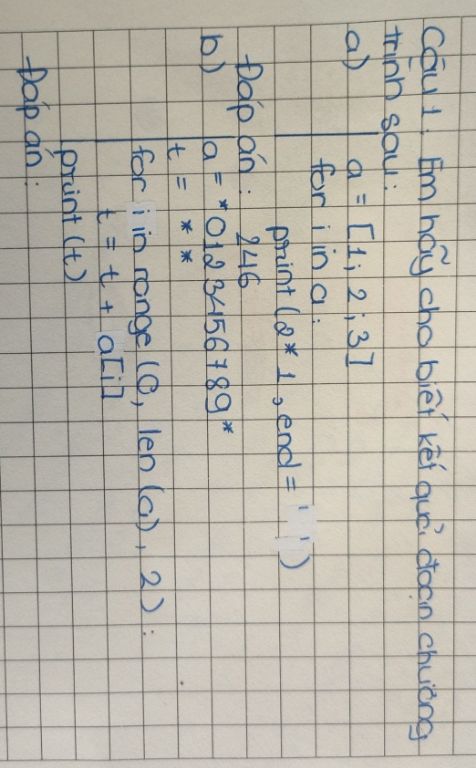 Câu 1: Em hãy cho biết kết quả đoạn chương
trình sau:
a) a = [1; 2; 3]
for i in a:
print(2*1, end = ' ')
Đáp án: 246
b) a = *0123456789*
t = **
for i in range(0, len(a), 2):
t = t + a[i]
print(t)
Đáp án: